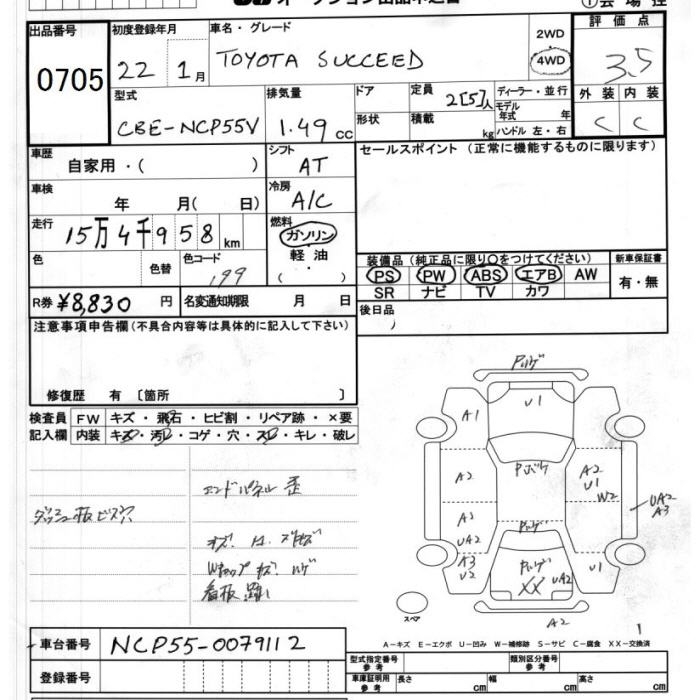 出品番号
0705
初度登録年月
22 1月
車名・グレード
TOYOTA SUCCEED
2WD
4WD
評価点
3.5
型式
CBE-NCP55V
排気量
1.49 cc
ドア
形状
定員
2[5]人
積載
kg
ディーラー・並行
モデル年式 年
ハンドル 左・右
外装 内装
C C
車歴
自家用・( )
シフト
AT
セールスポイント(正常に機能するものに限ります)
車検
年 月( 日)
冷房
A/C
走行
15万4千958km
燃料
ガソリン
軽油
( )
色
色替
色コード
199
装備品(純正品に限り○をつけてください)
PS PW ABS エアB AW
SR ナビ TV カワ
新車保証書
有・無
R券 ¥8,830 円
名変通知期限 月 日
後日品
注意事項申告欄(不具合内容等は具体的に記入して下さい)
修復歴 有 [箇所 ]
検査員 FW キズ・飛石・ヒビ割・リペア跡・×要
記入欄 内装 キズ・汚レ・コゲ・穴・スレ・キレ・破レ
エンドパネル 歪
ダッシュ板ビス穴
看板跡
A1
U1
A2
A2
U1
W2
UA2
A3
UA2
A3
U2
XX
UA2
U1
A2
スペア
A-キズ E-エクボ U-凹み W-補修跡 S-サビ C-腐食 XX-交換済
車台番号 NCP55-0079112
登録番号
型式指定番号
参考
類別区分番号
参考
車庫証明用
参考
長さ cm
幅 cm
高さ cm